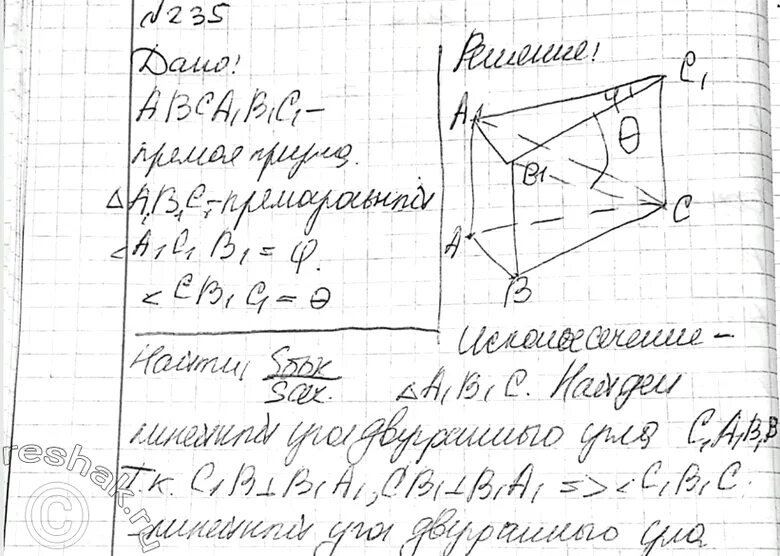 №235
Дано:
ABCA₁B₁C₁ –
прямая призма.
△A₁B₁C₁ – прямоугольный
∠A₁C₁B₁ = φ.
∠CB₁C₁ = θ
Найти: Sбок/Sсеч.
Решение:
A₁
B₁
C₁
φ
θ
A
B
C
Искомое сечение –
△A₁B₁C. Найдем
линейный угол двугранного угла C₁A₁B₁B
Т.к. C₁B⊥B₁A₁, CB₁⊥B₁A₁ => ∠C₁B₁C.
– линейный угол двугранного угла
reshak.ru